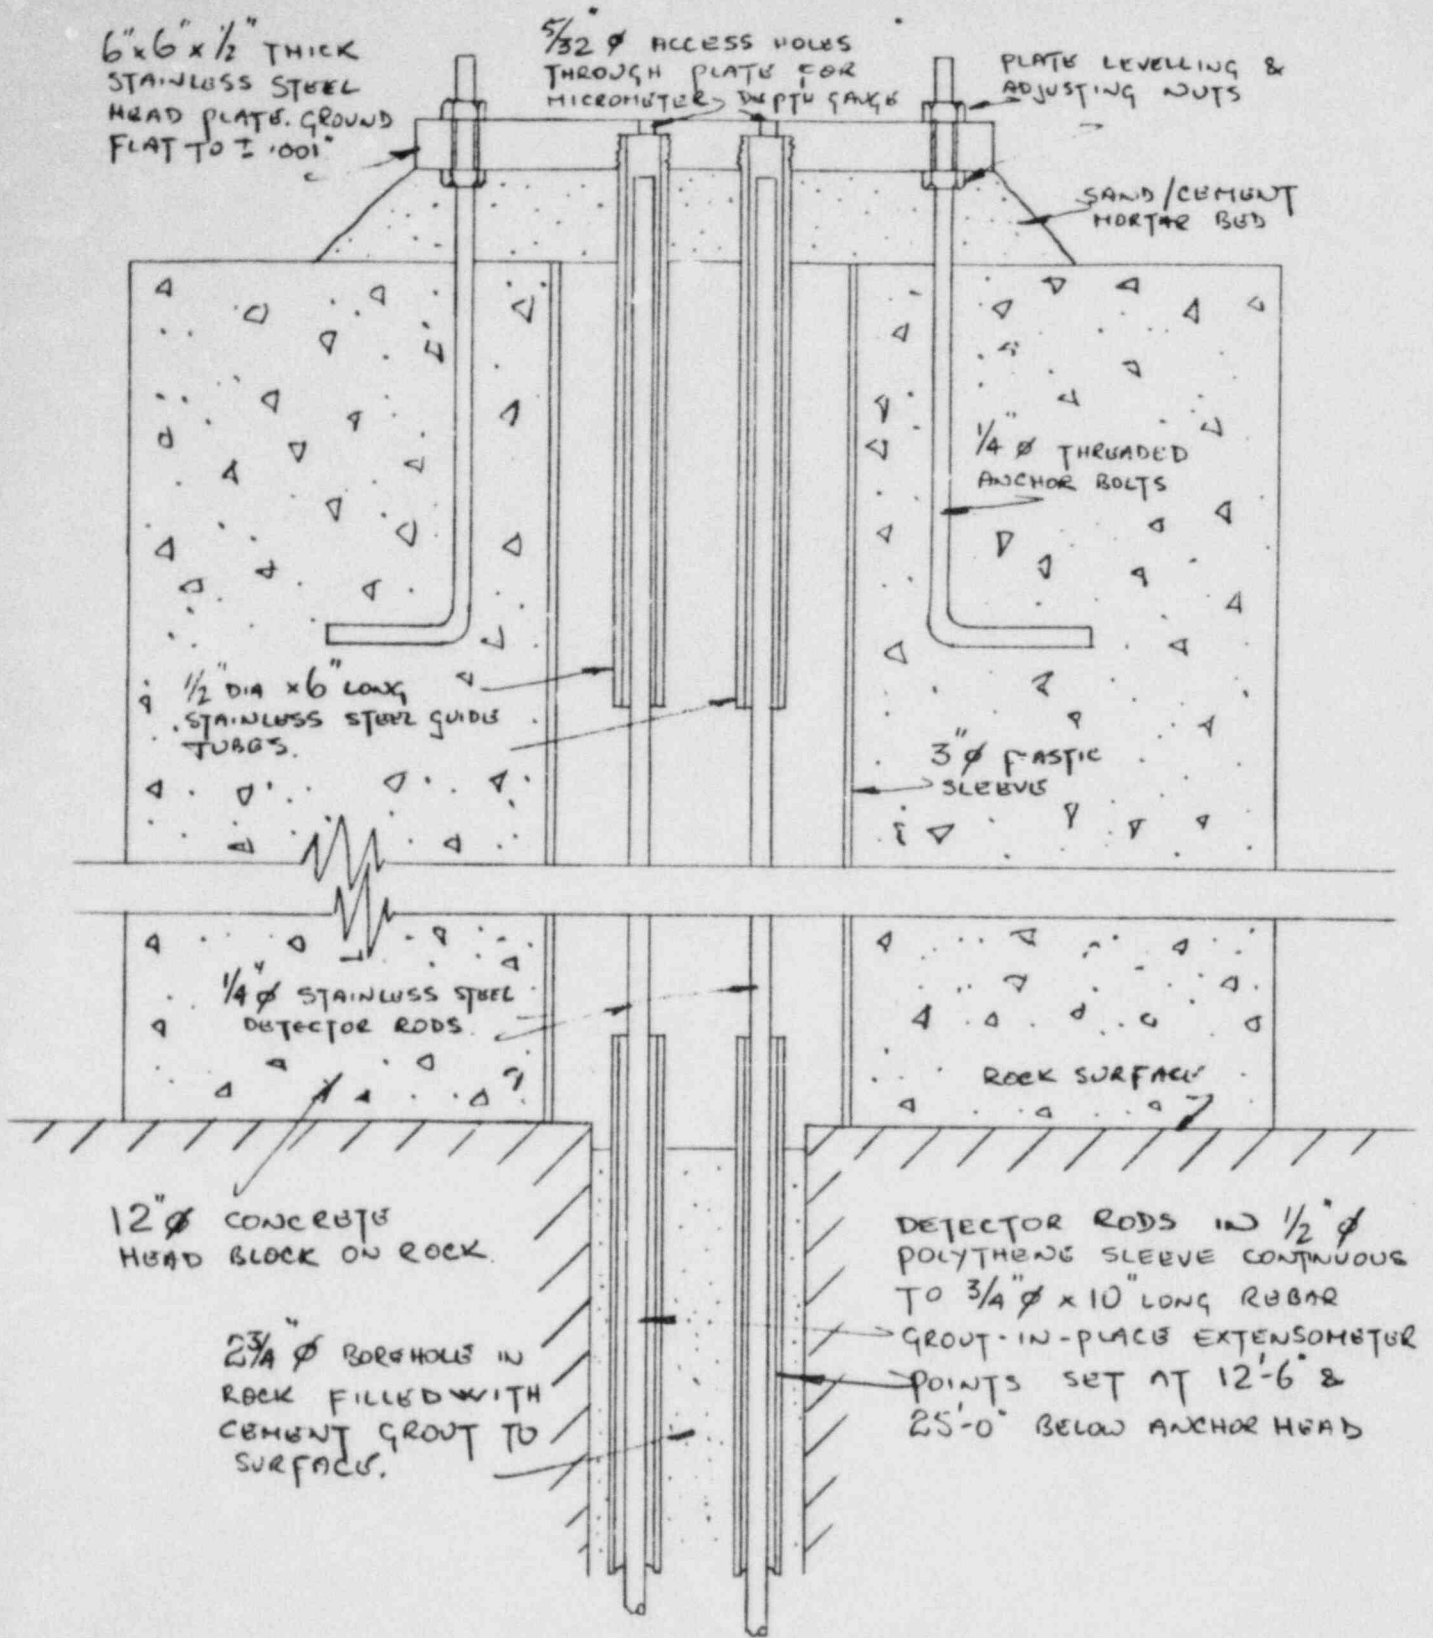 6"x6"x 1/2" THICK
STAINLESS STEEL
HEAD PLATE. GROUND
FLAT TO ± .001"
5/32" ø ACCESS HOLES
THROUGH PLATE FOR
MICROMETER DEPTH GAUGE
PLATE LEVELLING &
ADJUSTING NUTS
SAND/CEMENT
MORTAR BED
1/4" ø THREADED
ANCHOR BOLTS
1/2" DIA x 6" LONG
STAINLESS STEEL GUIDE
TUBES.
3" ø
SLEEVE
1/4" ø STAINLESS STEEL
DETECTOR RODS.
ROCK SURFACE
12" ø CONCRETE
HEAD BLOCK ON ROCK.
2 3/4" ø BOREHOLE IN
ROCK FILLED WITH
CEMENT GROUT TO
SURFACE.
DETECTOR RODS IN 1/2" ø
POLYTHENE SLEEVE CONTINUOUS
TO 3/4" ø x 10" LONG REBAR
GROUT-IN-PLACE EXTENSOMETER
POINTS SET AT 12'-6" &
25'-0" BELOW ANCHOR HEAD